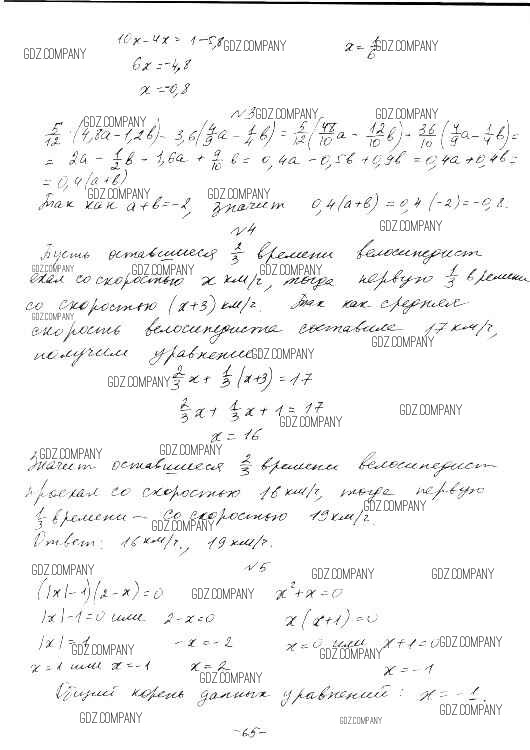 10x-4x= 1-5,8 GDZ.COMPANY x= 1/6 GDZ.COMPANY
GDZ.COMPANY 6x=-4,8
x=-0,8
N3 GDZ.COMPANY GDZ.COMPANY
GDZ.COMPANY
5/12 · (4,8a-1,2b) - 3,6(4/9 a - 1/4 b) = 5/12 (48/10 a - 12/10 b) - 36/10 (4/9 a - 1/4 b) =
= 2a - 1/2 b - 1,6a + 9/10 b = 0,4a - 0,5b + 0,9b = 0,4a + 0,4b =
= 0,4(a+b)
GDZ.COMPANY GDZ.COMPANY
Так как a+b=-2, значит 0,4(a+b)=0,4·(-2)=-0,8.
N4 GDZ.COMPANY
Пусть оставшиеся 2/3 времени велосипедист
GDZ.COMPANY GDZ.COMPANY GDZ.COMPANY
ехал со скоростью x км/ч, тогда первую 1/3 времени
со скоростью (x+3) км/ч. Так как средняя
GDZ.COMPANY
скорость велосипедиста составила 17 км/ч,
GDZ.COMPANY
получим уравнение GDZ.COMPANY
GDZ.COMPANY 2/3 x + 1/3 (x+3) = 17
2/3 x + 1/3 x + 1 = 17 GDZ.COMPANY
GDZ.COMPANY
x = 16
GDZ.COMPANY GDZ.COMPANY
Значит оставшиеся 2/3 времени велосипедист
проехал со скоростью 16 км/ч, тогда первую
GDZ.COMPANY
1/3 времени – со скоростью 19 км/ч.
GDZ.COMPANY
Ответ: 16 км/ч., 19 км/ч.
N5
GDZ.COMPANY GDZ.COMPANY GDZ.COMPANY
(|x|-1)(2-x)=0 GDZ.COMPANY x²+x=0
|x|-1=0 или 2-x=0 x(x+1)=0
|x|=1 GDZ.COMPANY -x=-2 x=0 или x+1=0 GDZ.COMPANY
GDZ.COMPANY
x=1 или x=-1 x=2 x=-1
GDZ.COMPANY
Общий корень данных уравнений: x=-1.
GDZ.COMPANY GDZ.COMPANY GDZ.COMPANY
-65-